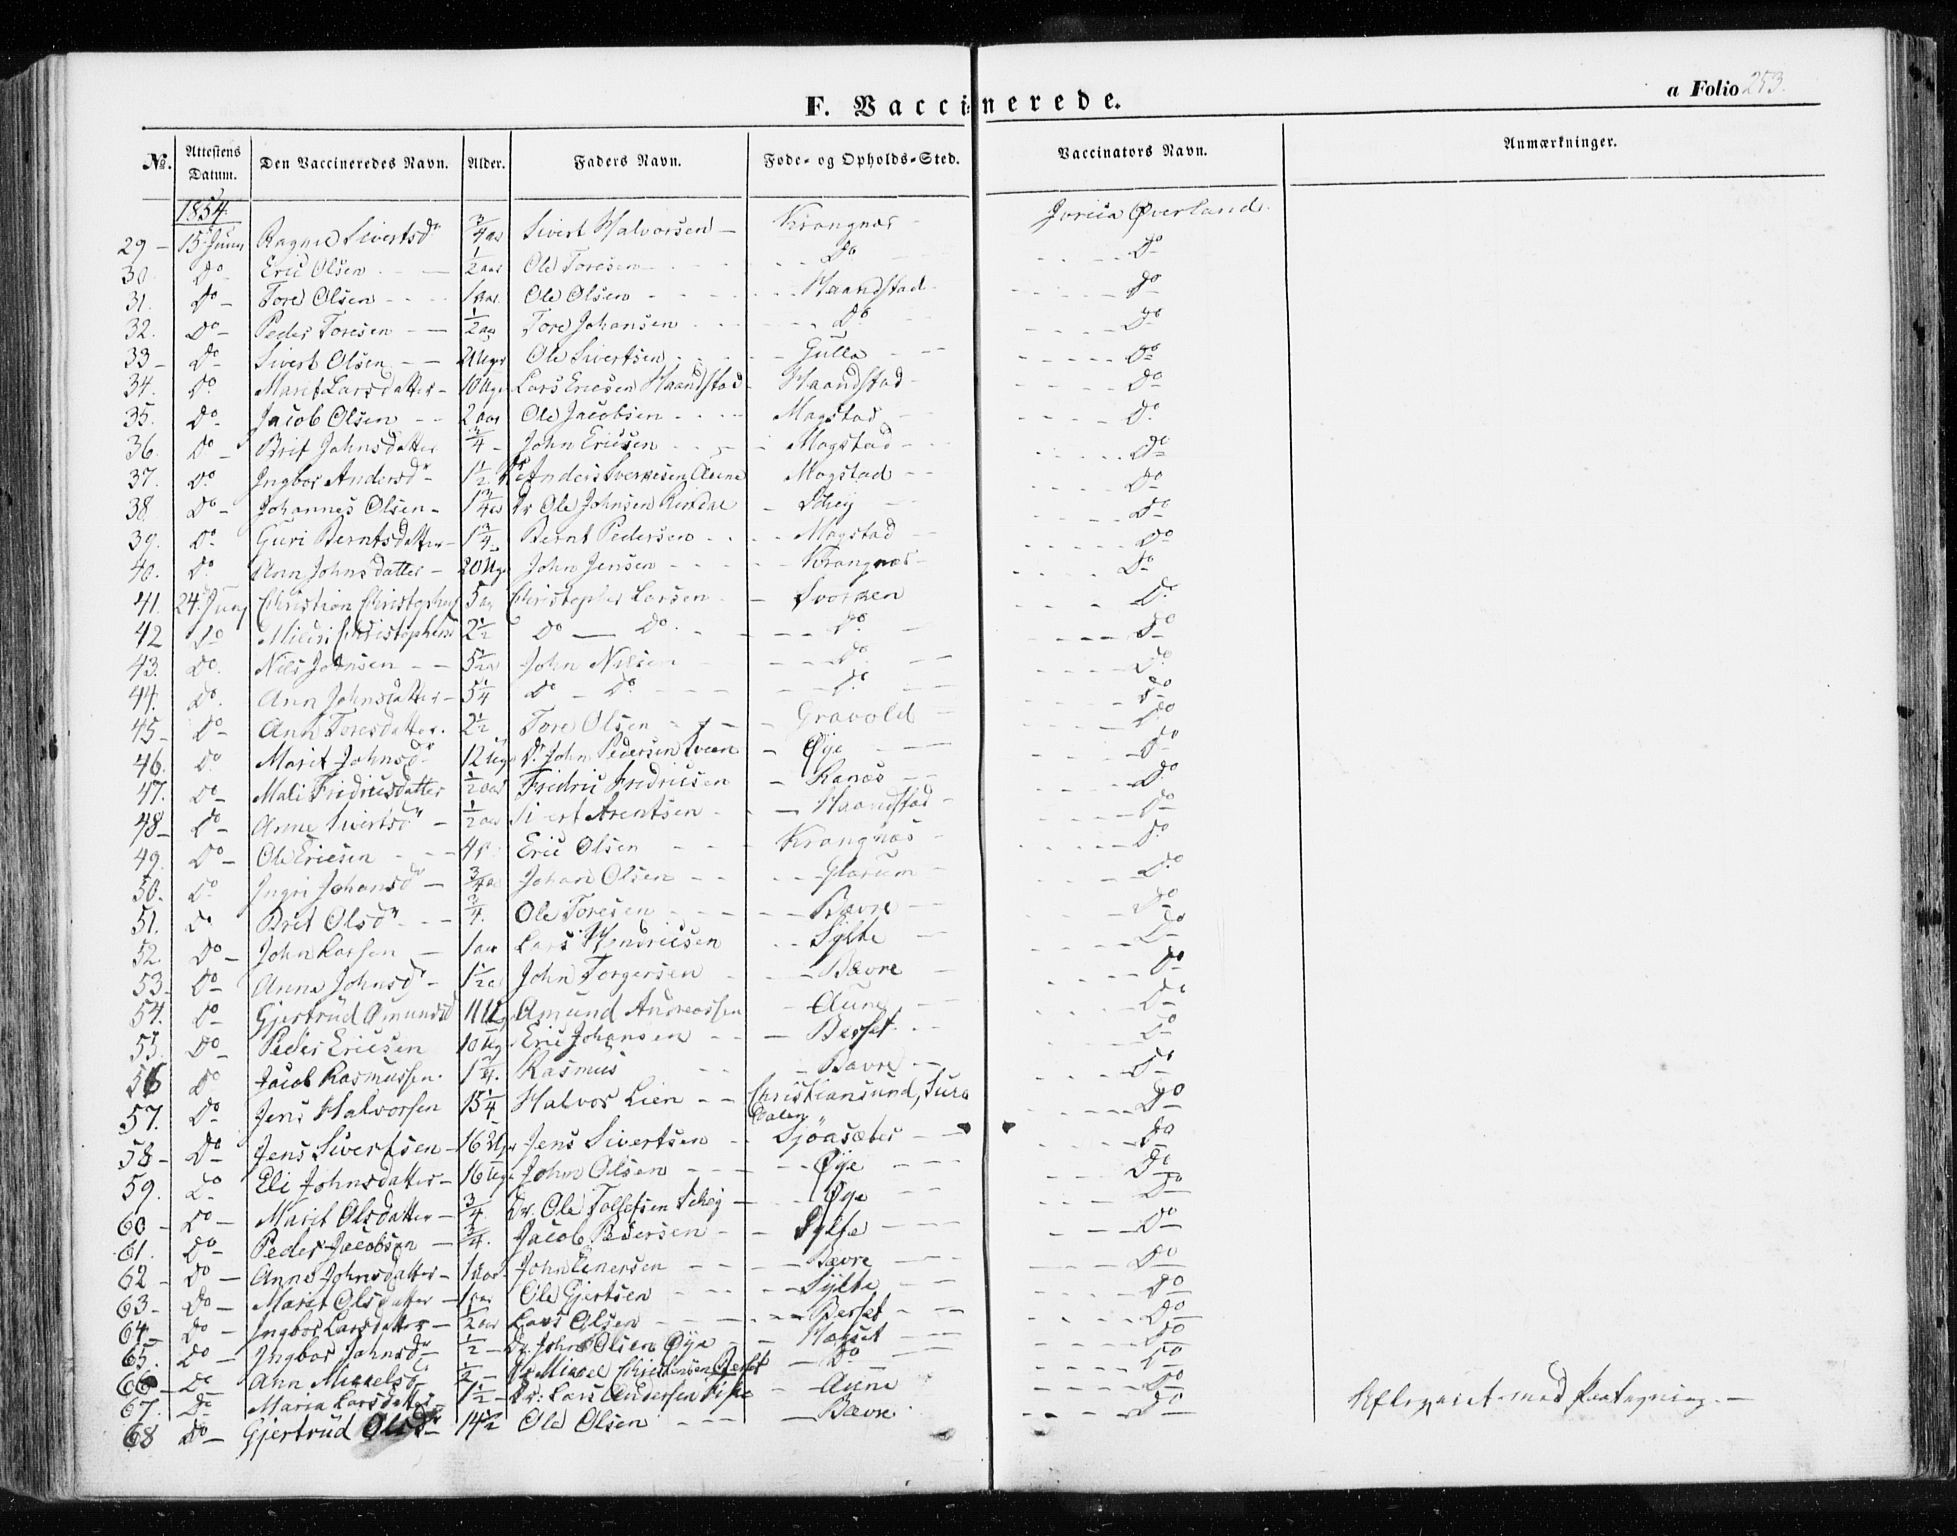 F. Vaccinerede.
a Folio 253.
No. Attestens Datum. Den Vaccineredes Navn. Alder. Faders Navn. Føde- og Opholds-Sted. Vaccinators Navn. Anmærkninger.
1854
29 - 15 Juny Ragnil Sivertsdr 3/4 aar Sivert Halvorsen - Krangnæs Øverland.
30. Do Eric Olsen 1/2 aar Ole Toresen Do Do
31. Do - Tore Olsen 1 aar Ole Olsen Haandstad Do
32. Do - Peder Toresen 1/2 aar Tore Johansen Do Do
33 - Do Sivert Olsen Ole Sivertsen Gulla Do
34. Do Marit Larsdatter - 10 Uger Lars Ericsen Haandstad - Haandstad Do
35. Do Jacob Olsen 2 aar Ole Jacobsen Magstad Do
36. Do - Brit Johnsdatter 3/4 - John Ericsen Mogstad Do
37. Do Ingbor Andersdr 1 1/2 Anders Aune Mogstad Do
38. Do - Johannes Olsen - 1 3/4 aar Dr Ole Johnsen Rindal - Schey Do
39. Do Guri Berntsdatter - 1 3/4 Bernt Pedersen Mogstad Do
40. Do Ann Johnsdatter - 20 Uger John Jensen Krangnæs - Do
41. 24 Juny Christian 5 aar Christopher Larsen - Svorken Do
42 Do 2 1/2 Do - Do. Do Do
43. Do. Nils Johnsen 5 1/2 aar John Nilsen Do Do
44. Do. Ann Johnsdatter - 5 1/4 Do - Do Do Do
45 - Do Ann Toresdatter. 2 1/2 Tore Olsen - Gravold Do
46. Do Marit Johnsdr 12 Uger Dr John Pedersen - Øye Do
47. Do - Mali Fridricsdatter 1/2 aar Fridric Fredricsen - Ranæs Do
48 - Do - Anne Sivertsdr - 1/2 aar Sivert Arentsen - Haandstad - Do
49. Do - Ole Ericsen 4 Eric Olsen Krangnæs Do
50. Do Ingri Johansdr - 3/4 aar Johan Olsen Glærum Do
51. Do Brit Olsdr 3/4. Ole Toresen Bævre Do
52. Do - John Larsen 1 aar Lars Hendricsen Sylte Do
53 - Do Anne Johnsdr - 1 1/2 John Torgersen Bævre Do
54. Do Gjertrud Amundsd 11 U Amund Andreassen - Aune Do
55. Do - Peder Ericsen 10 Ug Eric Johansen - Berset Do
56 Do Jacob Rasmussen. 1 3/4. Rasmus - Bævre Do
57. Do Jens Halvorsen 15 1/4 Halvor Lien Christiansund, Suradalen Do
58 - Do Jens Sivertsen - 16 Uger Jens Sivertsen Sjöasæter Do
59. Do Eli Johnsdatter - 16 Uger John Olsen Øye Do
60 - Do - Marit Olsdatter - 3/4. Dr. Ole Tollefsen Schey Øye Do
61. Do Peder Jacobsen - 3/4. Jacob Pedersen - Sylte Do
62 - Do - Anne Johnsdatter - 1 aar John Einersen Bævre Do
63 - Do - Marit Olsdatter - 1 aar Ole Gjertsen Sylte Do
64 - Do - Ingbor Larsdatter - 1/2 aar Lars Olsen Berset Do
65. Do - Ingbor Johnsdr 1/2 - Dr. John Olsen Øye - Do
66 - Do Ann Mikkelsd 1/2 - Dr Mikkel Christensen Berset - Do Do
67. Do Maria Larsdatter 1 1/2 - Dr: Lars Andersen - Aune Do
68 Do - Gjertrud Olsdr - 14 1/2 Ole Olsen - Bævre Do med Paategning. -